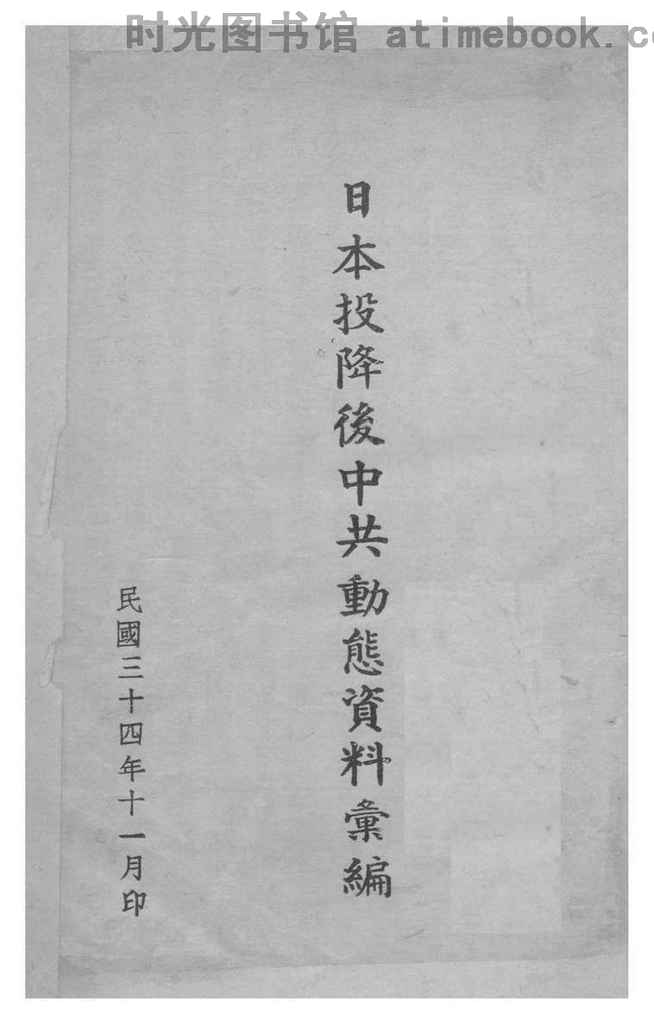 时光图书馆 atimebook.c
日本投降後中共動態資料彙編
民國三十四年十一月印